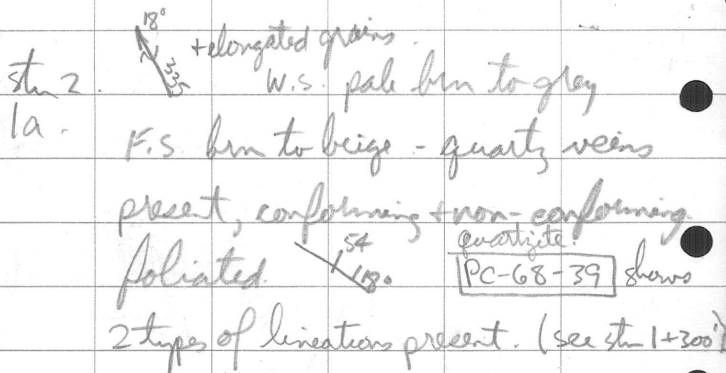 18°
~335
+elongated grains.
stn 2.
W.S. pale brn to grey
1a.
F.S. brn to beige - quartz veins
present, conforming + non-conforming
foliated.
54
118°
quartzite.
PC-68-39 shows
2 types of lineations present. (see stn 1+300')